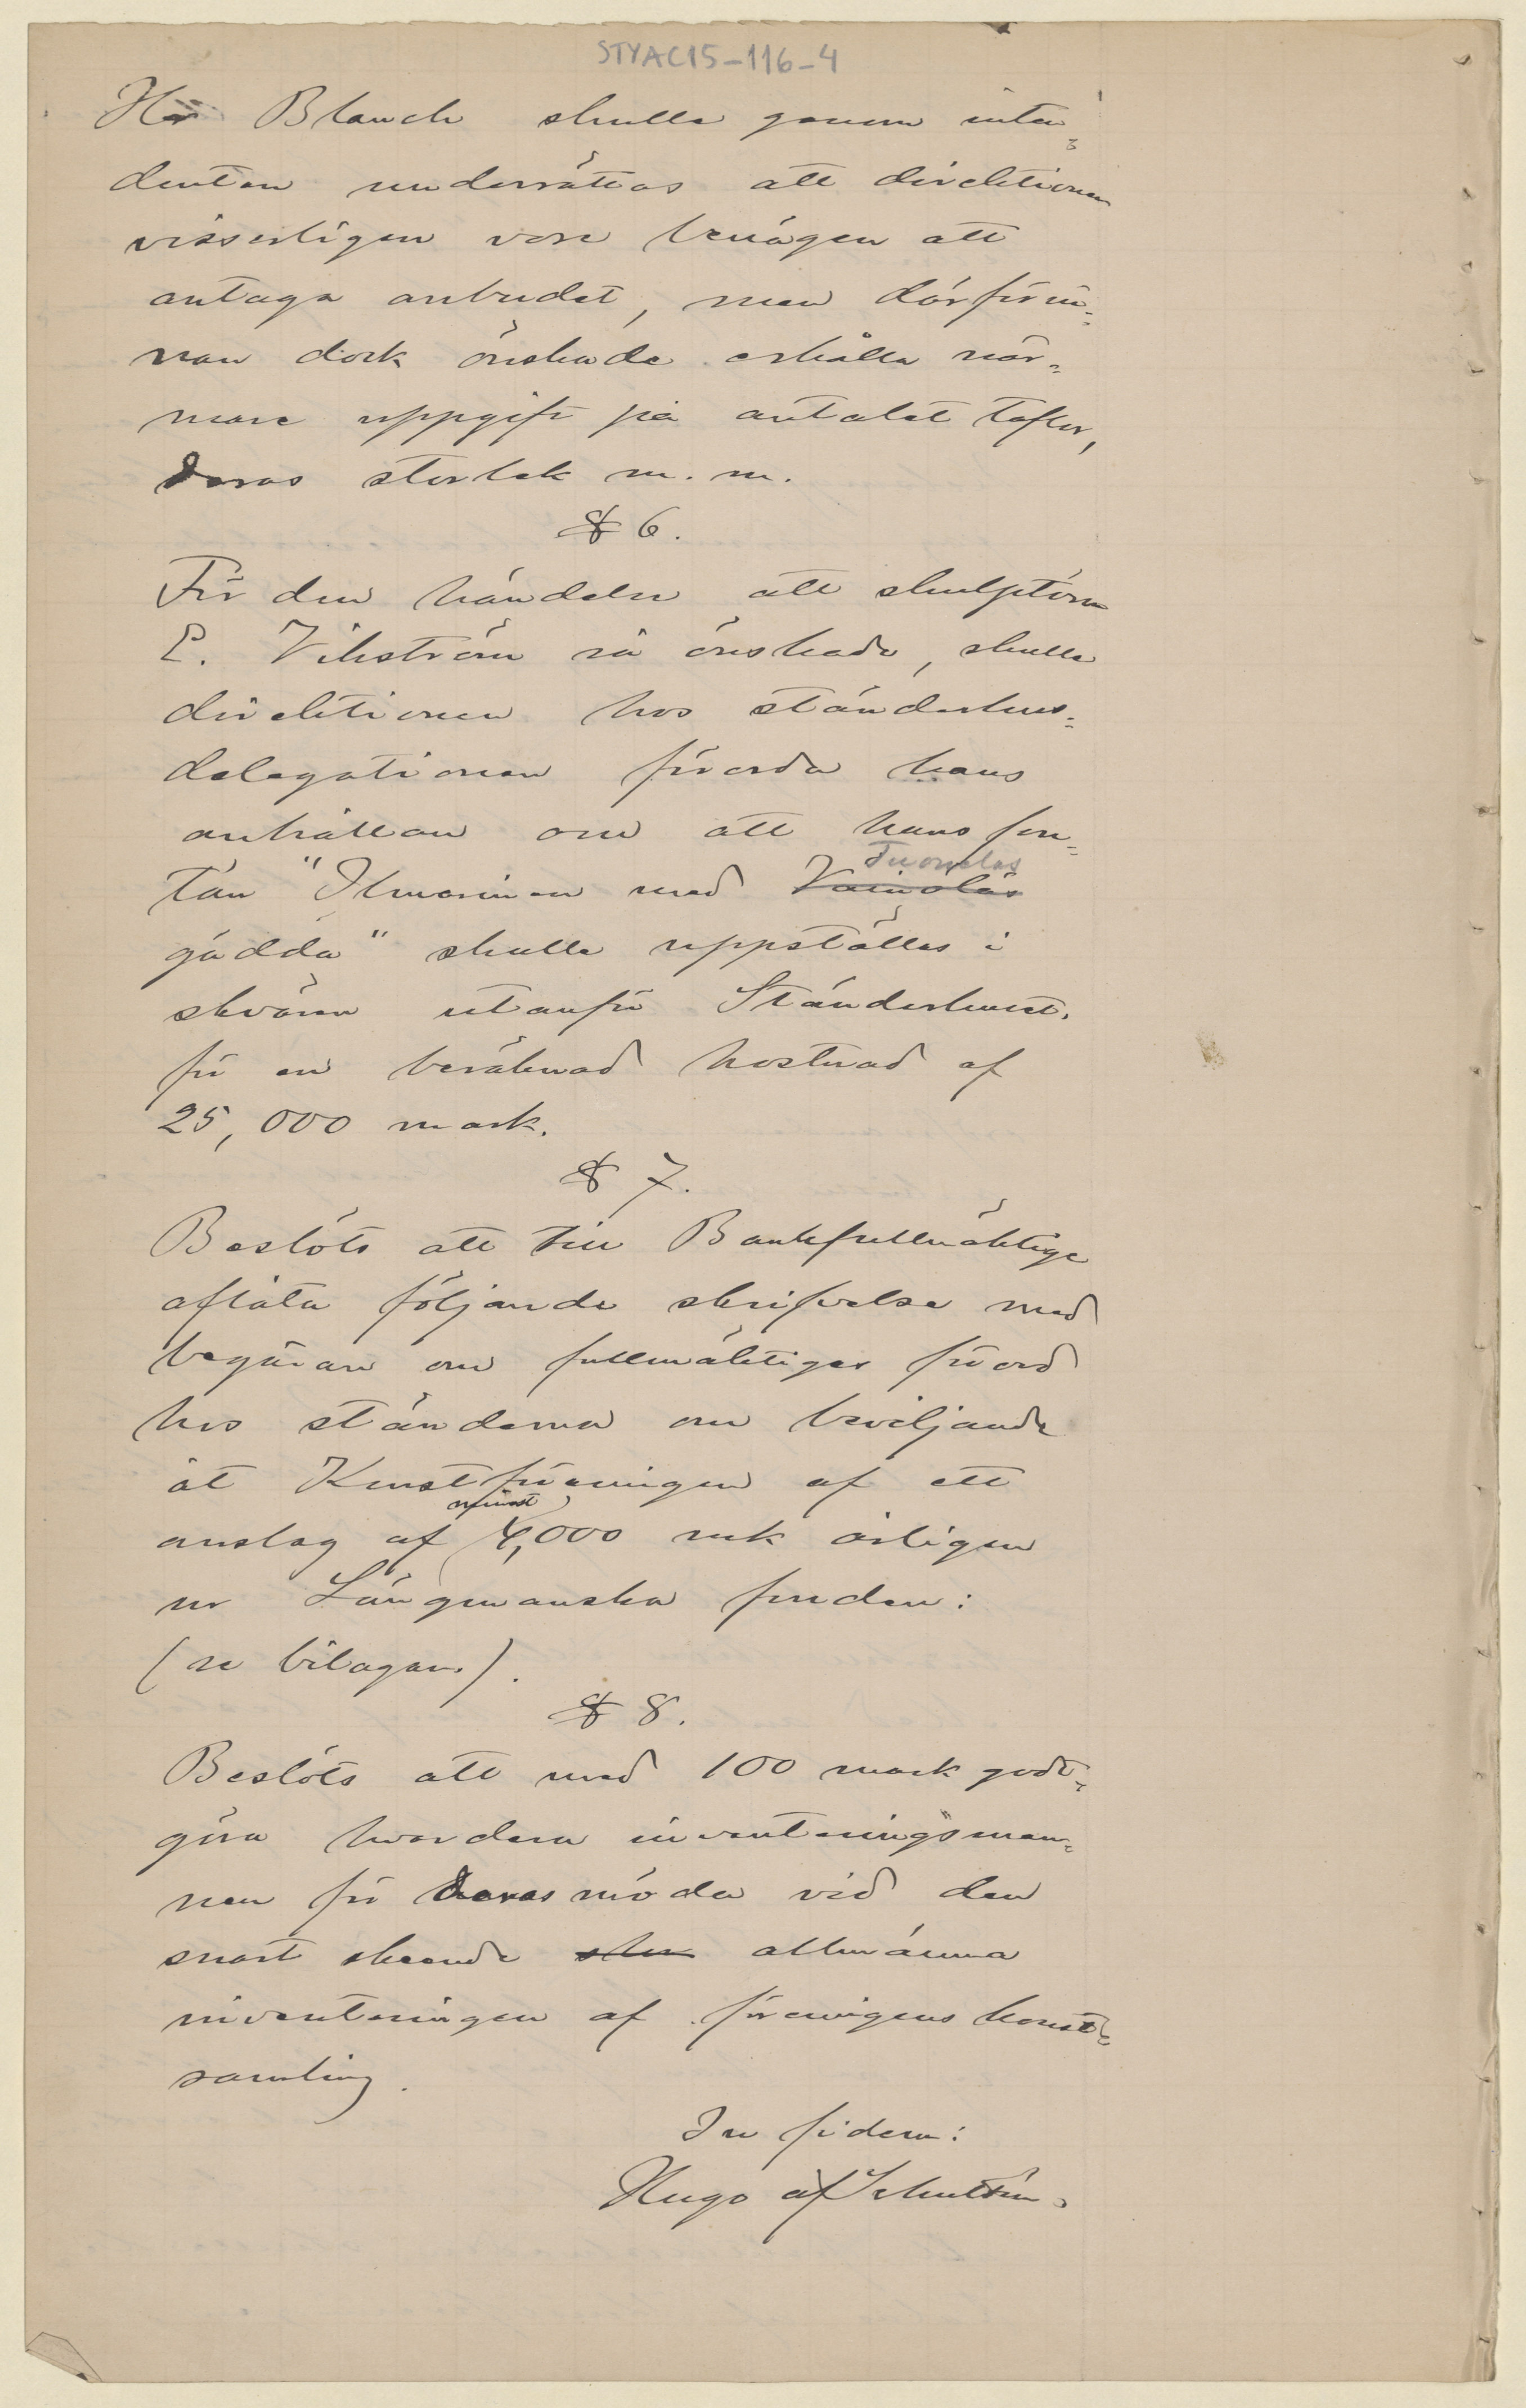 STYAC15-116-4
Hr Blanch skulle genom inten-
denten underrättas att direktionen
visserligen vore benägen att
antaga anbudet, men därförin-
nan dock önskade erhålla när-
mare uppgift på antalet taflor,
deras storlek m. m.
§ 6.
För den händelse att skulptören
E. Vikström så önskade, skulle
direktionen hos ständerhus-
delegationen förorda hans
anhållan om att hans fon-
Tuonelas
tän "Ilmarinen med Vainolas
gädda" skulle uppställas i
skvären utanför Ständerhuset.
för en beräknad kostnad af
25,000 mark.
§ 7.
Beslöts att till Bankfullmäktige
aflåta följande skrifvelse med
begäran om fullmäktiges förord
hos ständerna om beviljande
åt Konstföreningen af ett
minst
anslag af 4,000 mk årligen
ur Längmanska fonden:
(se bilagan.).
§ 8.
Beslöts att med 100 mark godt-
göra hvardera inventeringsmän-
nen för deras möda vid den
snart skeende allmänna
inventeringen af föreningens konst-
samling.
In fidem:
Hugo af Schultén.